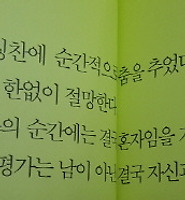 칭찬에 순간적으 춤을 추었다
한없이 절망한다
의 순간에는 결국 혼자임을
평가는 남이 아닌 결국 자신과